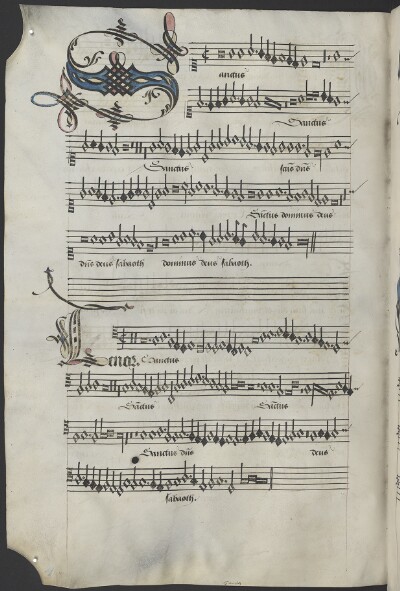 Sanctus
Sanctus
Sanctus scũs dñs
Sãctus dominus deus
dñs deus sabaoth dominus deus sabaoth.
Tenor. Sanctus
Sãctus Sãctus
Sanctus dñs deus
sabaoth.